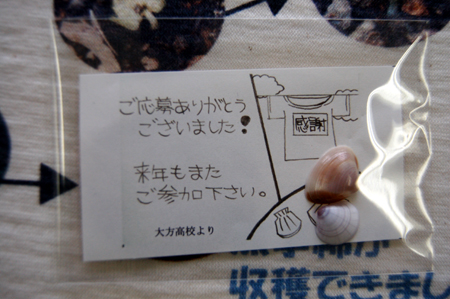 ご応募ありがとう
ございました!
来年もまた
ご参加下さい。
大方高校より
感謝
収穫できまし